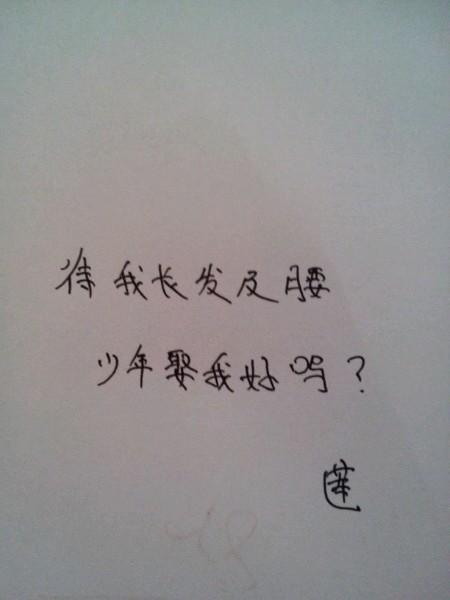 待我长发及腰
少年娶我好吗?
莲